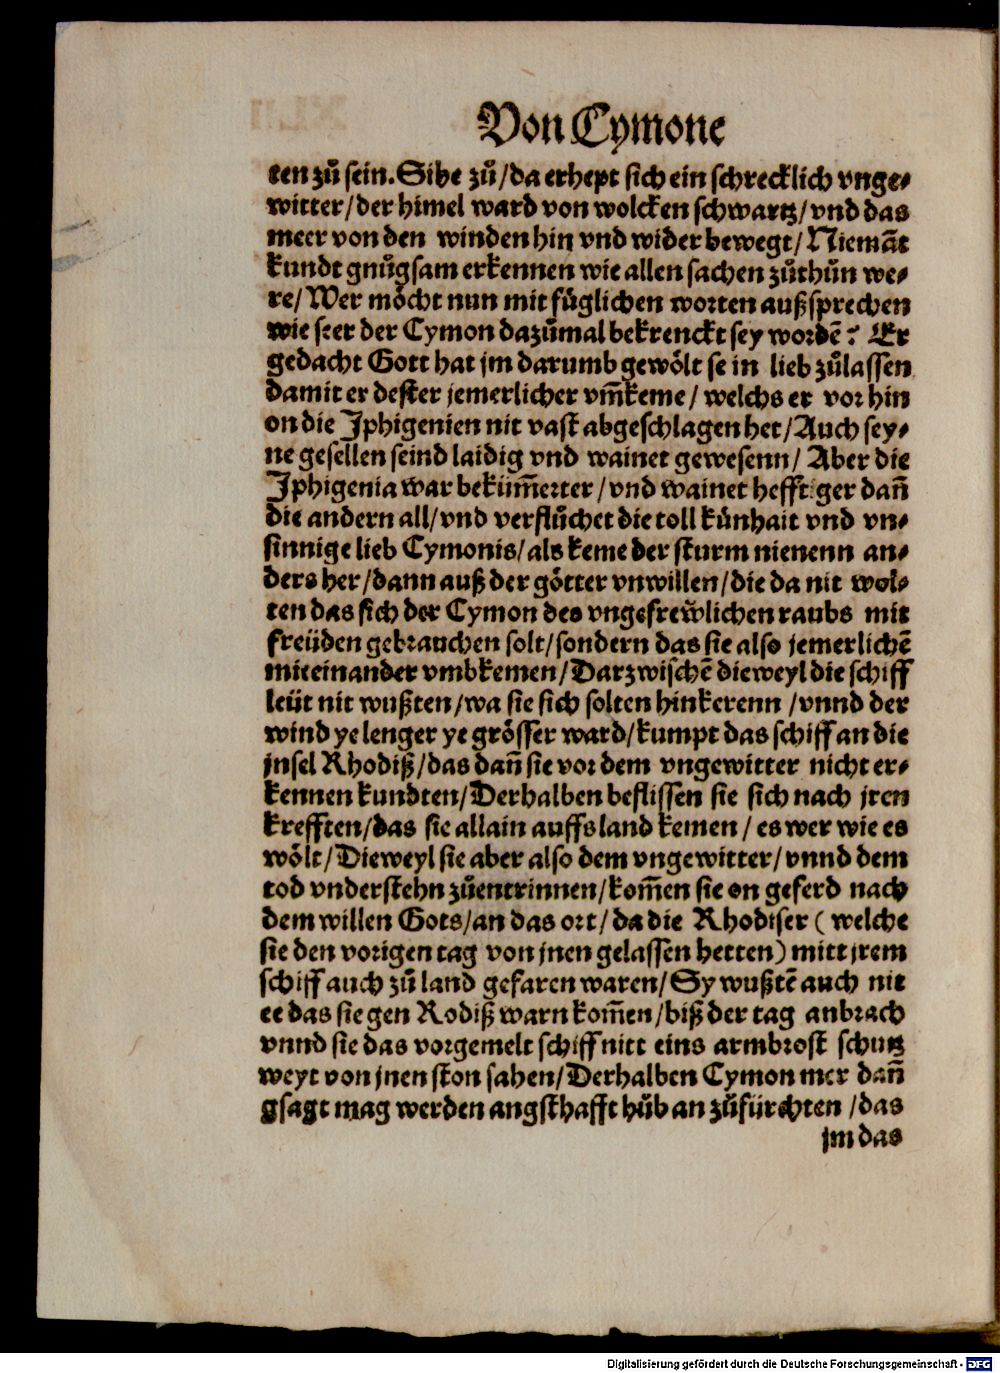 Von Cymone
ten zů sein. Sihe zů / da erhept sich ein schrecklich vnge⸗
witter / der himel ward von wolcken schwartz / vnd das
meer von den winden hin vnd wider bewegt / Niemāt
kundt gnůgsam erkennen wie allen sachen zůthůn we⸗
re / Wer möcht nun mit füglichen worten außsprechen
wie seer der Cymon dazůmal bekrenckt sey wordē? Er
gedacht Gott hat jm darumb gewölt sein lieb zůlassen
damit er dester jemerlicher vm̄keme / welchs er vor hin
on die Jphigenien nit vast abgeschlagen het / Auch sey⸗
ne gesellen seind laidig vnd wainet gewesenn / Aber die
Jphigenia war beküm̄erter / vnd wainet hefftiger dan̄
die andern all / vnd verflůchet die toll künhait vnd vn⸗
sinnige lieb Cymonis / als keme der sturm nienenn an⸗
ders her / dann auß der götter vnwillen / die da nit wol⸗
ten das sich der Cymon des vngefrewlichen raubs mit
freüden gebrauchen solt / sondern das sie also jemerlichē
miteinander vmbkemen / Darzwischē dieweyl die schiff
leüt nit wußten / wa sie sich solten hinkerenn / vnnd der
wind ye lenger ye grösser ward / kumpt das schiff an die
jnsel Rhodiß / das dan̄ sie vor dem vngewitter nicht er⸗
kennen kundten / Derhalben beflissen sie sich nach jren
krefften / das sie allain auffs land kemen / es wer wie es
wölt / Dieweyl sie aber also dem vngewitter / vnnd dem
tod vnderstehn zůentrinnen / kom̄en sie on geferd nach
dem willen Gots / an das ort / da die Rhodiser ( welche
sie den vorigen tag von jnen gelassen hetten ) mitt jrem
schiff auch zů land gefaren waren / Sy wußtē auch nit
ee das sie gen Rodiß warn kom̄en / biß der tag anbrach
vnnd sie das vorgemelt schiff nitt eins armbrost schutz
weyt von jnen ston sahen / Derhalben Cymon mer dan̄
gsagt mag werden angsthafft hůb an zůfürchten / das
jm das
Digitalisierung gefördert durch die Deutsche Forschungsgemeinschaft - DFG